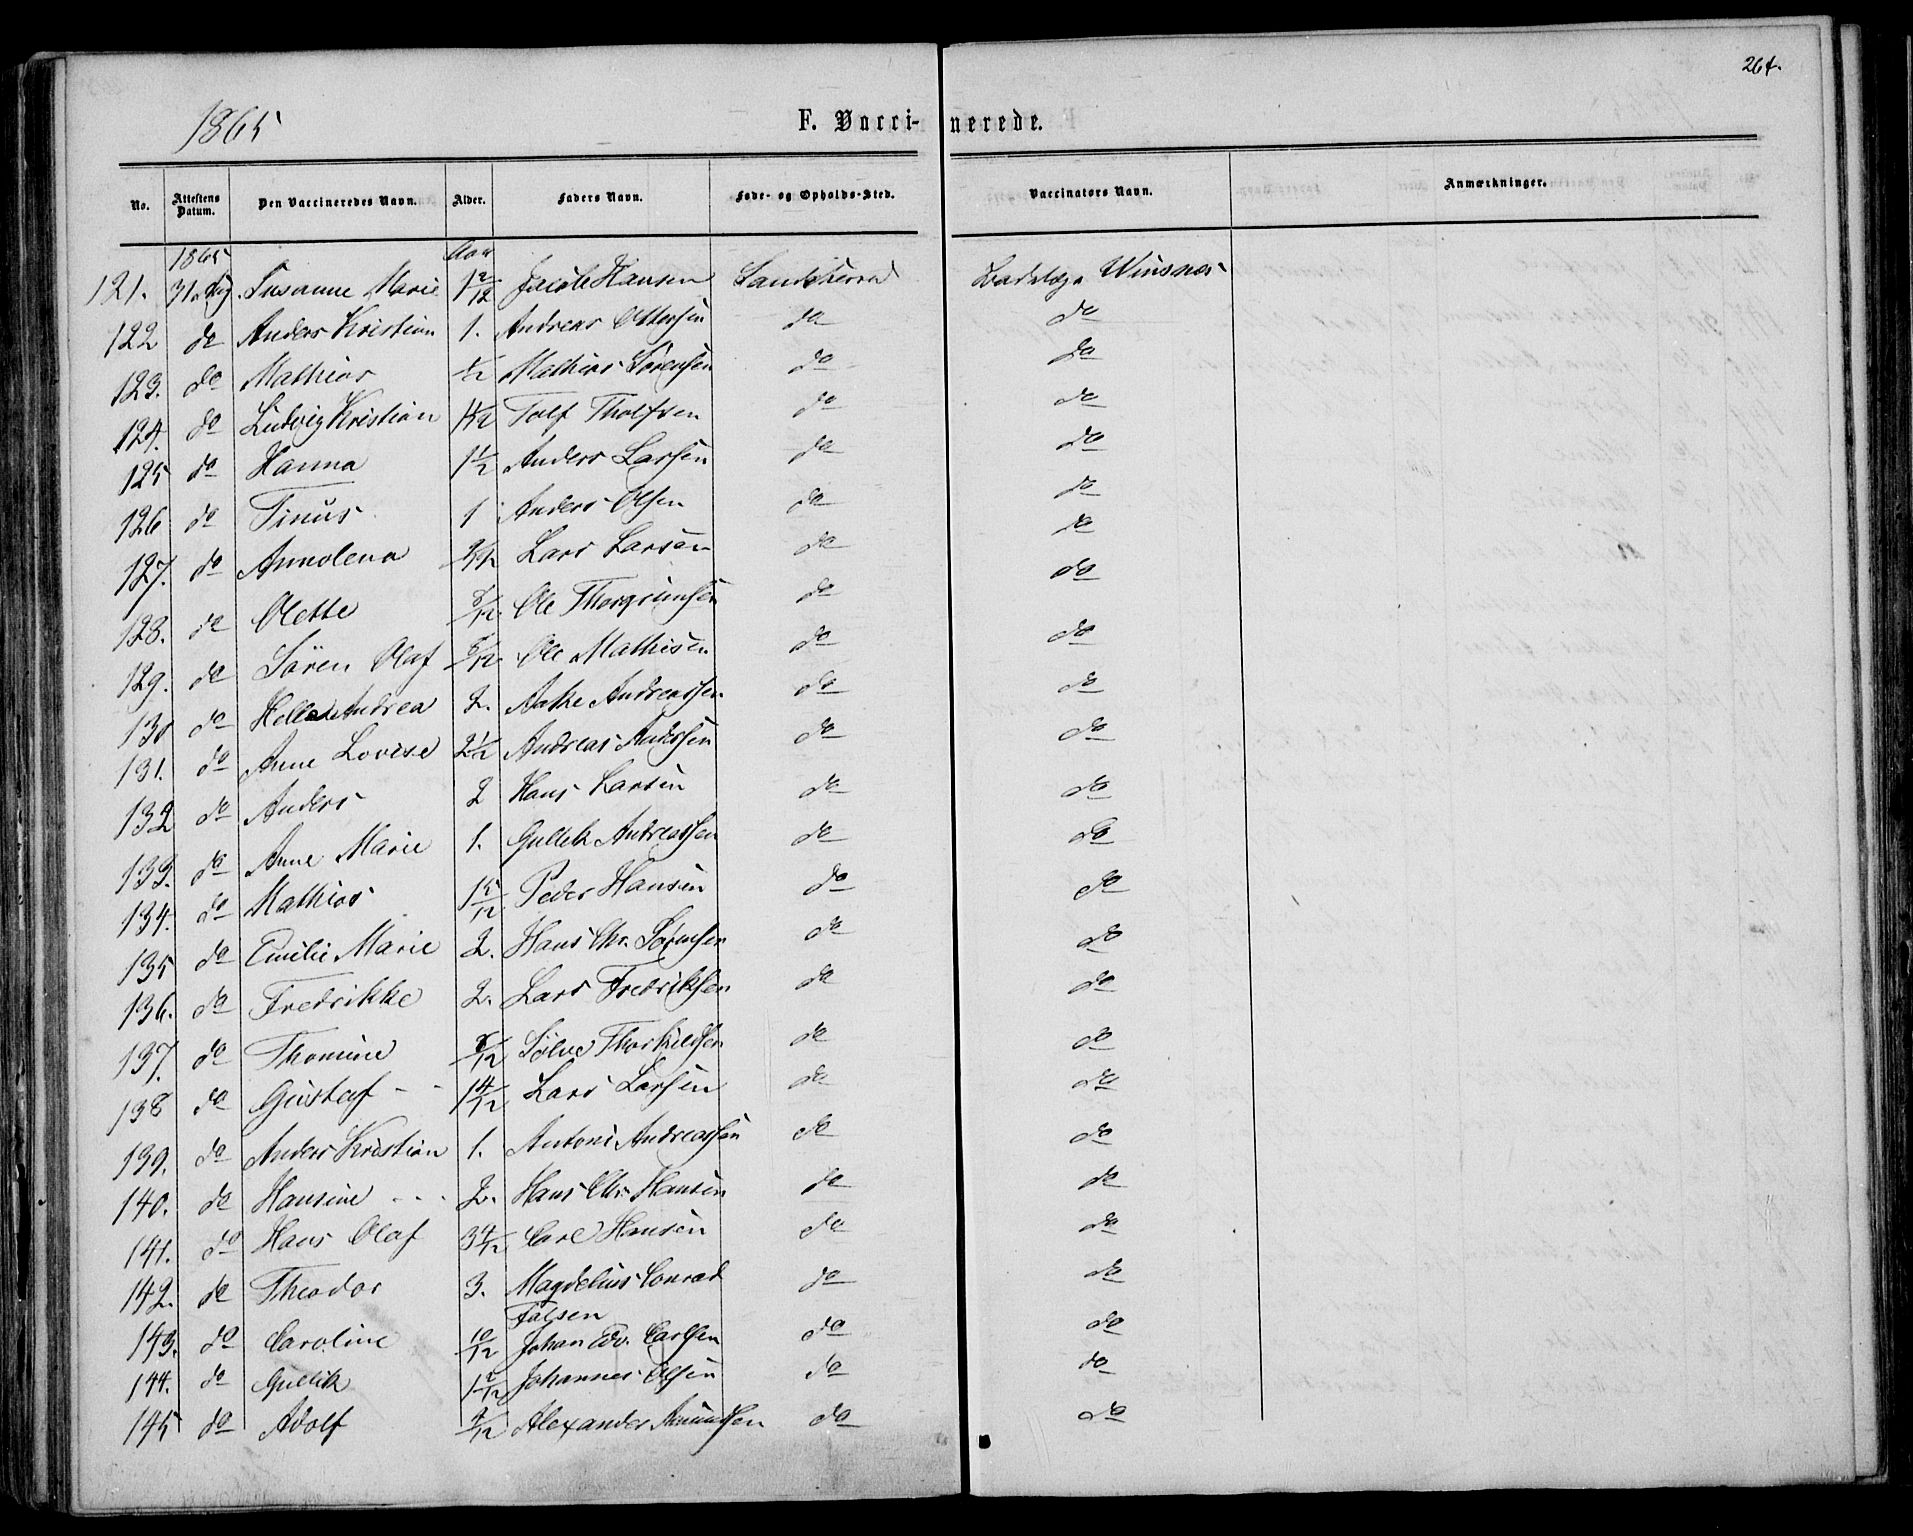 264.
1865
F. Vacci-nerede.
No. Attestens Datum. Den Vaccineredes Navn. Alder. Faders Navn. Føde- og Opholds-Sted. Vaccinators Navn. Anmærkninger.
1865 Aar
121. 31. Aug. Susanne Marie 1 2/12 Jacob Hansen Sandeherred Badelæge Winsnes
122 do Anders Kristian 1. Andreas Ottersen do do
123. do Mathias 1/2 Mathias Sörensen do do
124. do Ludvig Kristian 1 1/2 Tolf Tholfsen do do
125 do Hanna 1 1/2 Anders Larsen do do
126 do Tinus 1 Anders Olsen do do
127. do Annolena Lars Larsen do do
128. do Olette 8/12 Ole Thorgrimsen do do
129. do Sören Olaf 8/12 Ole Mathisen do do
130 do Helle Andrea 2. Anke Andreassen do do
131. do Anne Lovise 2 1/2 Andreas Andersen do do
132 do Anders 2 Hans Larsen do do
133. do Anne Marie 1. Gullek Andreassen do do
134. do Mathias 1 5/12 Peder Hansen do do
135 do Emilie Marie 2. Hans Chr. Sørensen do do
136. do Fredrikke 2. Lars Fredriksen do do
137. do Thomine 8/12 Sølve Thorkildsen do do
138 do Gustaf - - 1 4/12 Lars Larsen do do
139. do Anders Kristian 1. Antoni Andreassen do do
140. do Hansine - - - 2. Hans Chr. Hansen do do
141. do Hans Olaf 3 4/12 Carl Hansen do do
142. do Theodor 3. Magdelius Conrad do do
Falsen
143. do Caroline 10/12 Johan Edv. Carlsen do do
144. do Gullik 1 2/12 Johannes Olsen do do
145 do Adolf 9/12 Alexander Amundsen do do